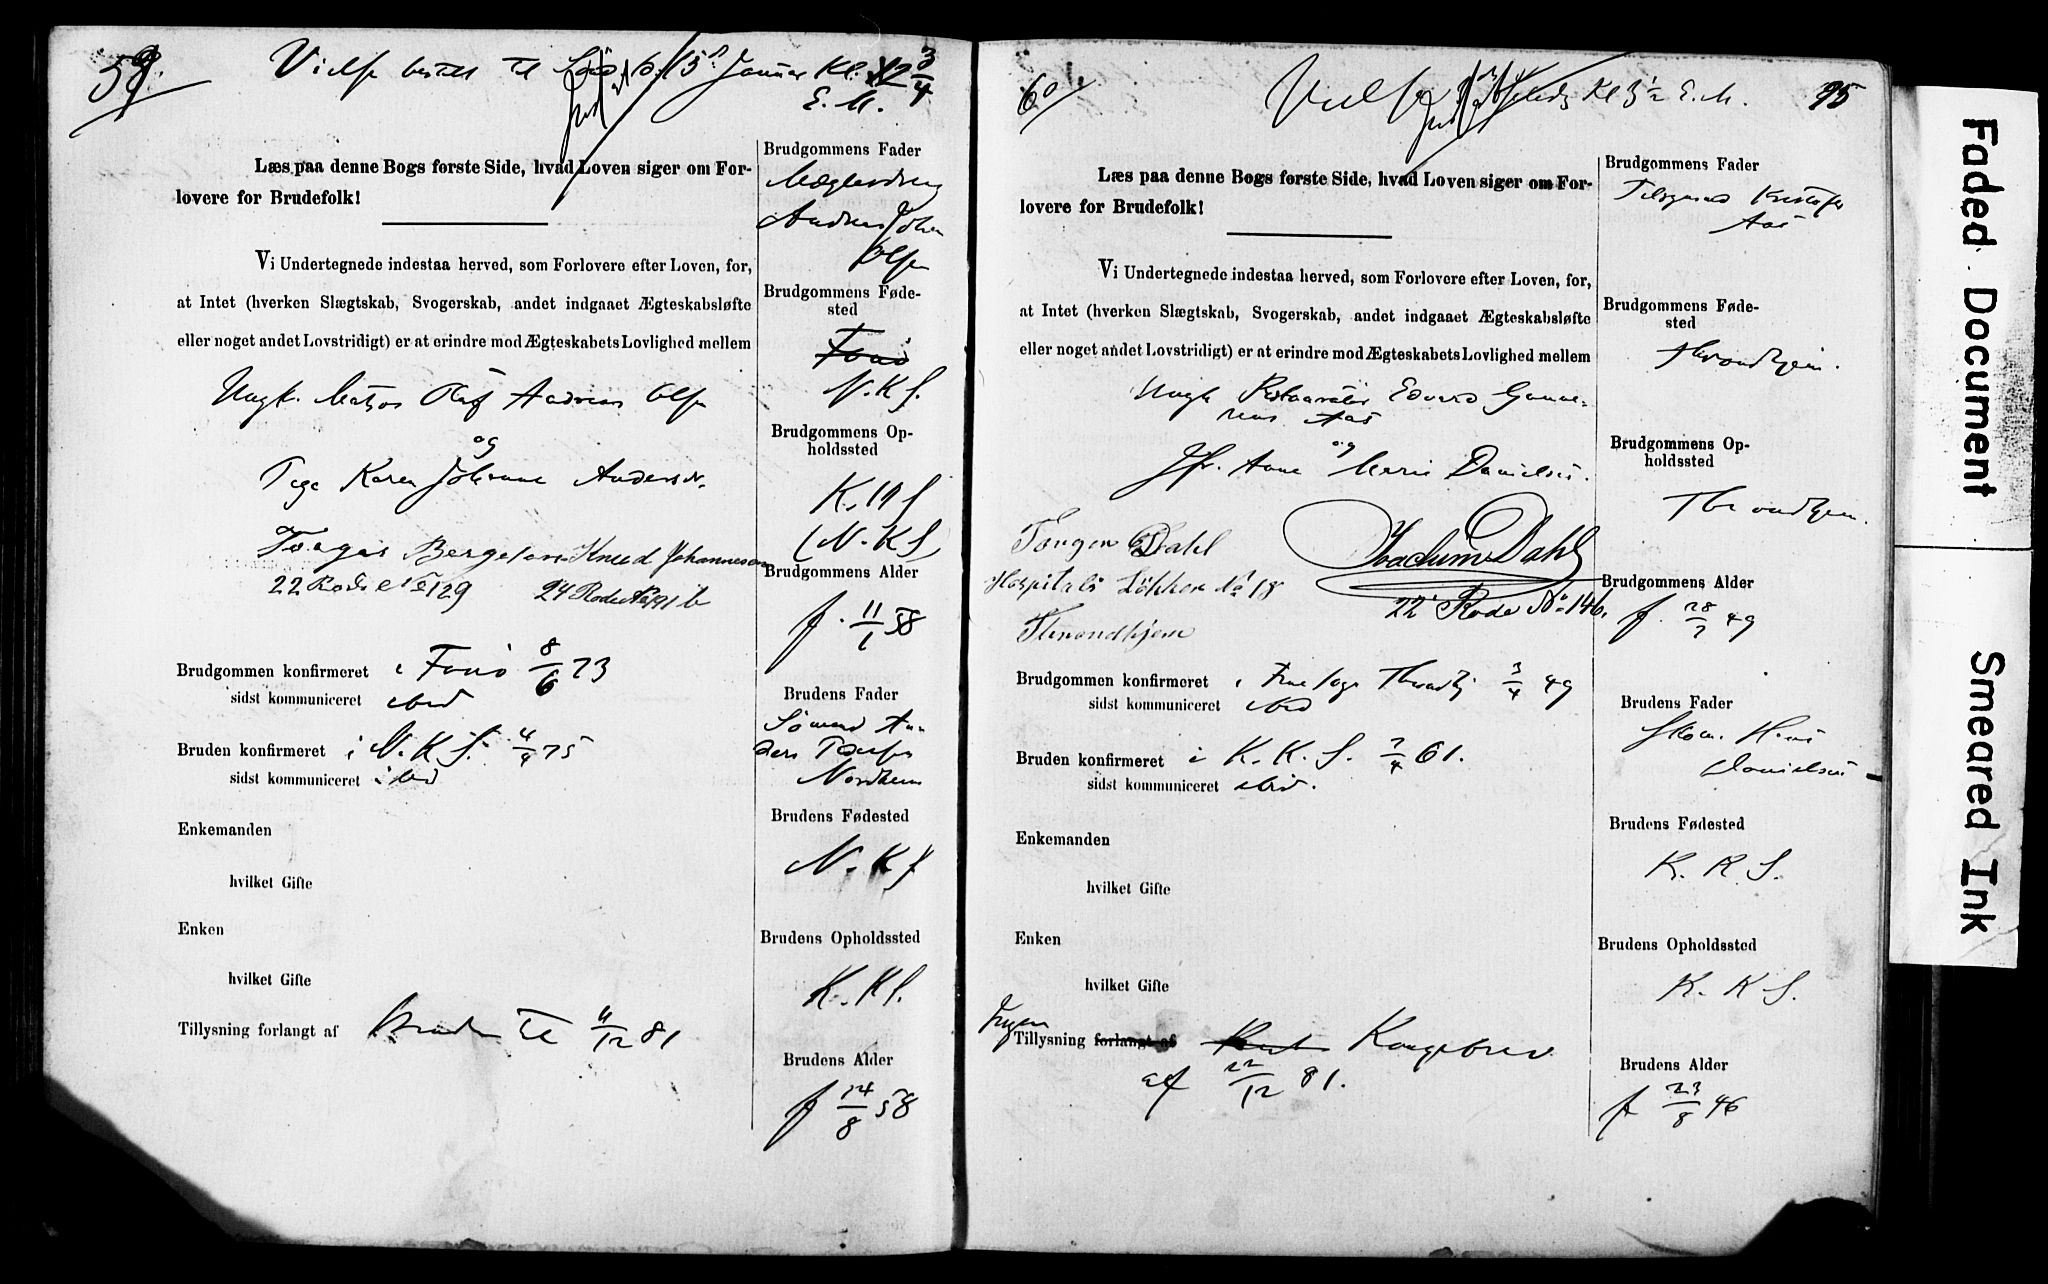 59.
Vielse bestilt til 15 Januar Kl. 12 3/4
E. M.
Læs paa denne Bogs første Side, hvad Loven siger om For-
lovere for Brudefolk!
Vi Undertegnede indestaa herved, som Forlovere efter Loven, for,
at Intet (hverken Slægtskab, Svogerskab, andet indgaaet Ægteskabsløfte
eller noget andet Lovstridigt) er at erindre mod Ægteskabets Lovlighed mellem
Ungk. Matros Olaf Andreas Olsen
og
Pige Karen Johanne Andersdr.
Bergesen Knud Johannesen
22 Rode No 129 24 Rode No 191 b
Brudgommen konfirmeret i 8/6 73
sidst kommuniceret ibid
Bruden konfirmeret i N. K. S. 4/4 75
sidst kommuniceret ibid
Enkemanden
hvilket Gifte
Enken
hvilket Gifte
Tillysning forlangt af Bruden til 11/12 81
Brudgommens Fader
Andreas Johan
Olsen
Brudgommens Føde-
sted
N. K. S.
Brudgommens Op-
holdssted
K. K S
(N. K S)
Brudgommens Alder
f. 11/1 58
Brudens Fader
Sømand An-
ders
Nordheim
Brudens Fødested
N. K S
Brudens Opholdssted
K. K S.
Brudens Alder
f 24/8 58
60.
Vielse Kl 3 1/2 E. M.
95
Læs paa denne Bogs første Side, hvad Loven siger om For-
lovere for Brudefolk!
Vi Undertegnede indestaa herved, som Forlovere efter Loven, for,
at Intet (hverken Slægtskab, Svogerskab, andet indgaaet Ægteskabsløfte
eller noget andet Lovstridigt) er at erindre mod Ægteskabets Lovlighed mellem
Ungk. Restauratør Edvard Gunne-
rius Aas
og
Jfr. Anne Marie Danielsen.
Torger Dahl Joachum Dahl
Hospitals Løkken No 18 22 Rode No 146.
Throndhjem
Brudgommen konfirmeret i Frue sogn Throndhj 3/4 49
sidst kommuniceret ibid
Bruden konfirmeret i K. K. S. 7/4 61.
sidst kommuniceret ibid.
Enkemanden
hvilket Gifte
Enken
hvilket Gifte
Ingen
Tillysning forlangt af Kongebrev
af 22/12 81.
Brudgommens Fader
Kristofer
Aas
Brudgommens Føde-
sted
Throndhjem.
Brudgommens Op-
holdssted
Throndhjem.
Brudgommens Alder
f. 28/7 49
Brudens Fader
Skom. Hans
Danielsen
Brudens Fødested
K. K. S.
Brudens Opholdssted
K. K S.
Brudens Alder
f 23/8 46
Faded Document
Smeared Ink